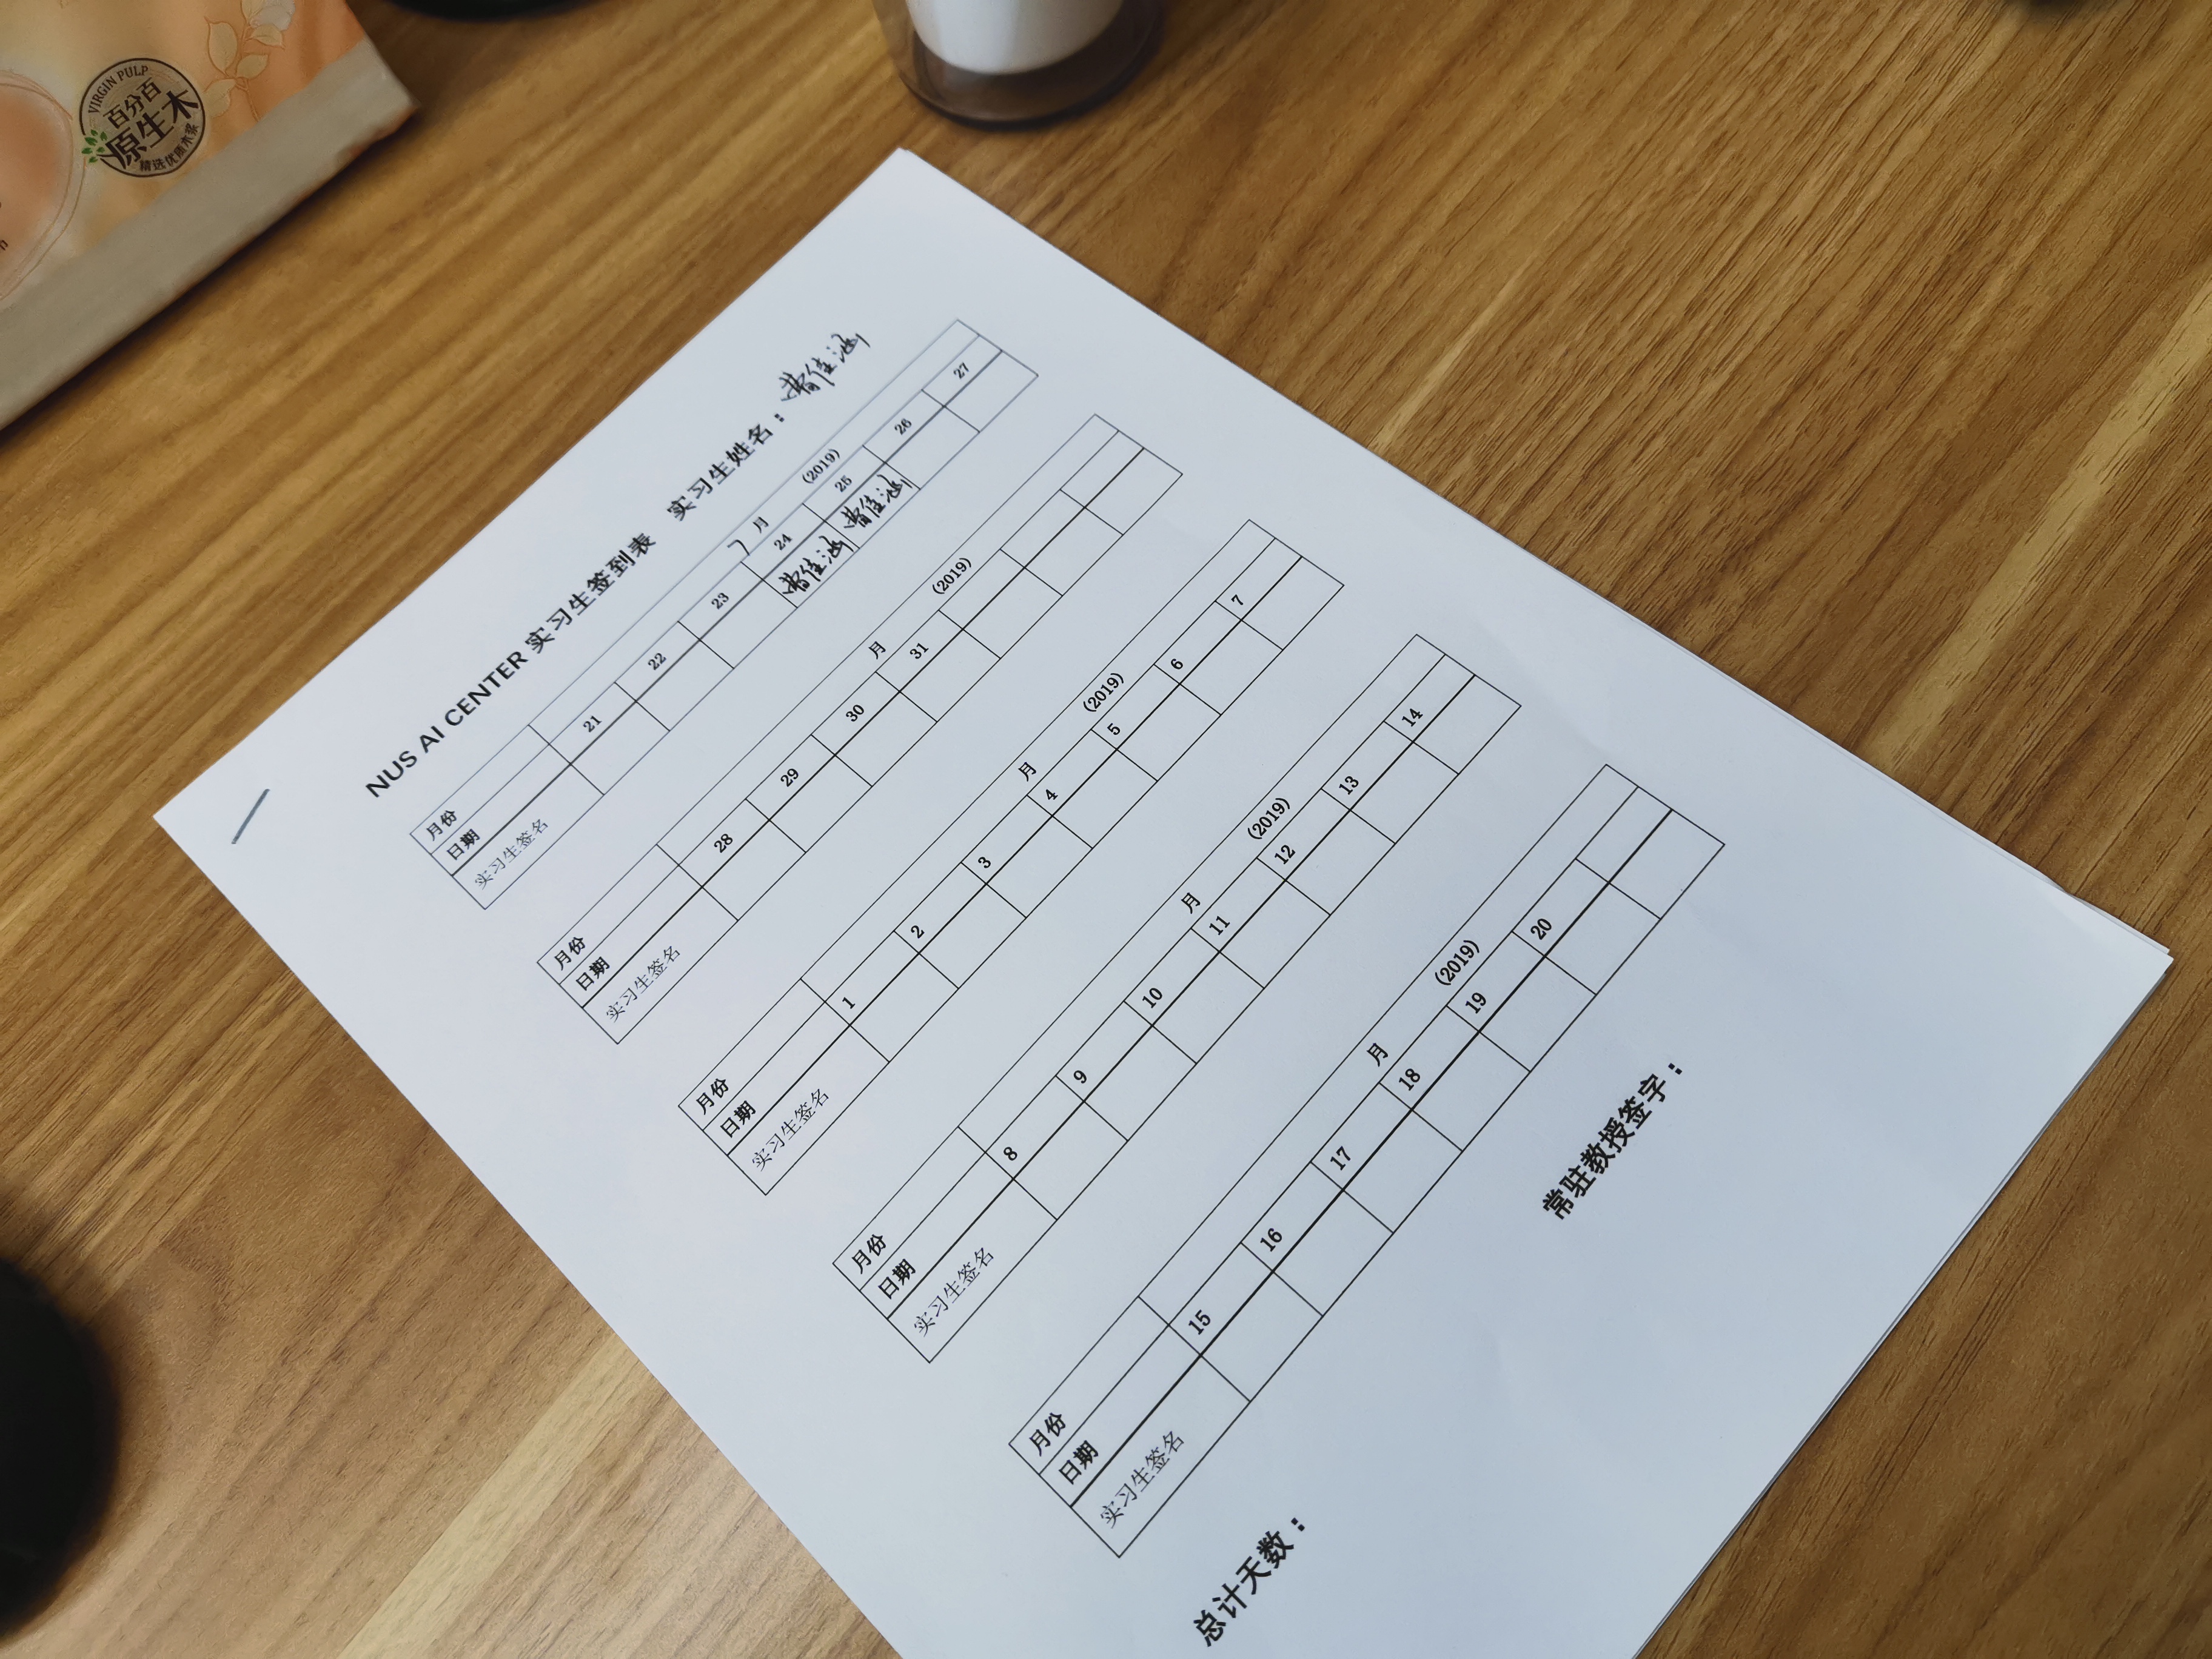 VIRGIN PULP
百分百
原生木
精选优质木浆
NUS AI CENTER 实习生签到表 实习生姓名：曹佳涵
月份 7 月 (2019)
日期 21 22 23 24 25 26 27
实习生签名 曹佳涵 曹佳涵
月份 月 (2019)
日期 28 29 30 31
实习生签名
月份 月 (2019)
日期 1 2 3 4 5 6 7
实习生签名
月份 月 (2019)
日期 8 9 10 11 12 13 14
实习生签名
月份 月 (2019)
日期 15 16 17 18 19 20
实习生签名
总计天数： 常驻教授签字：